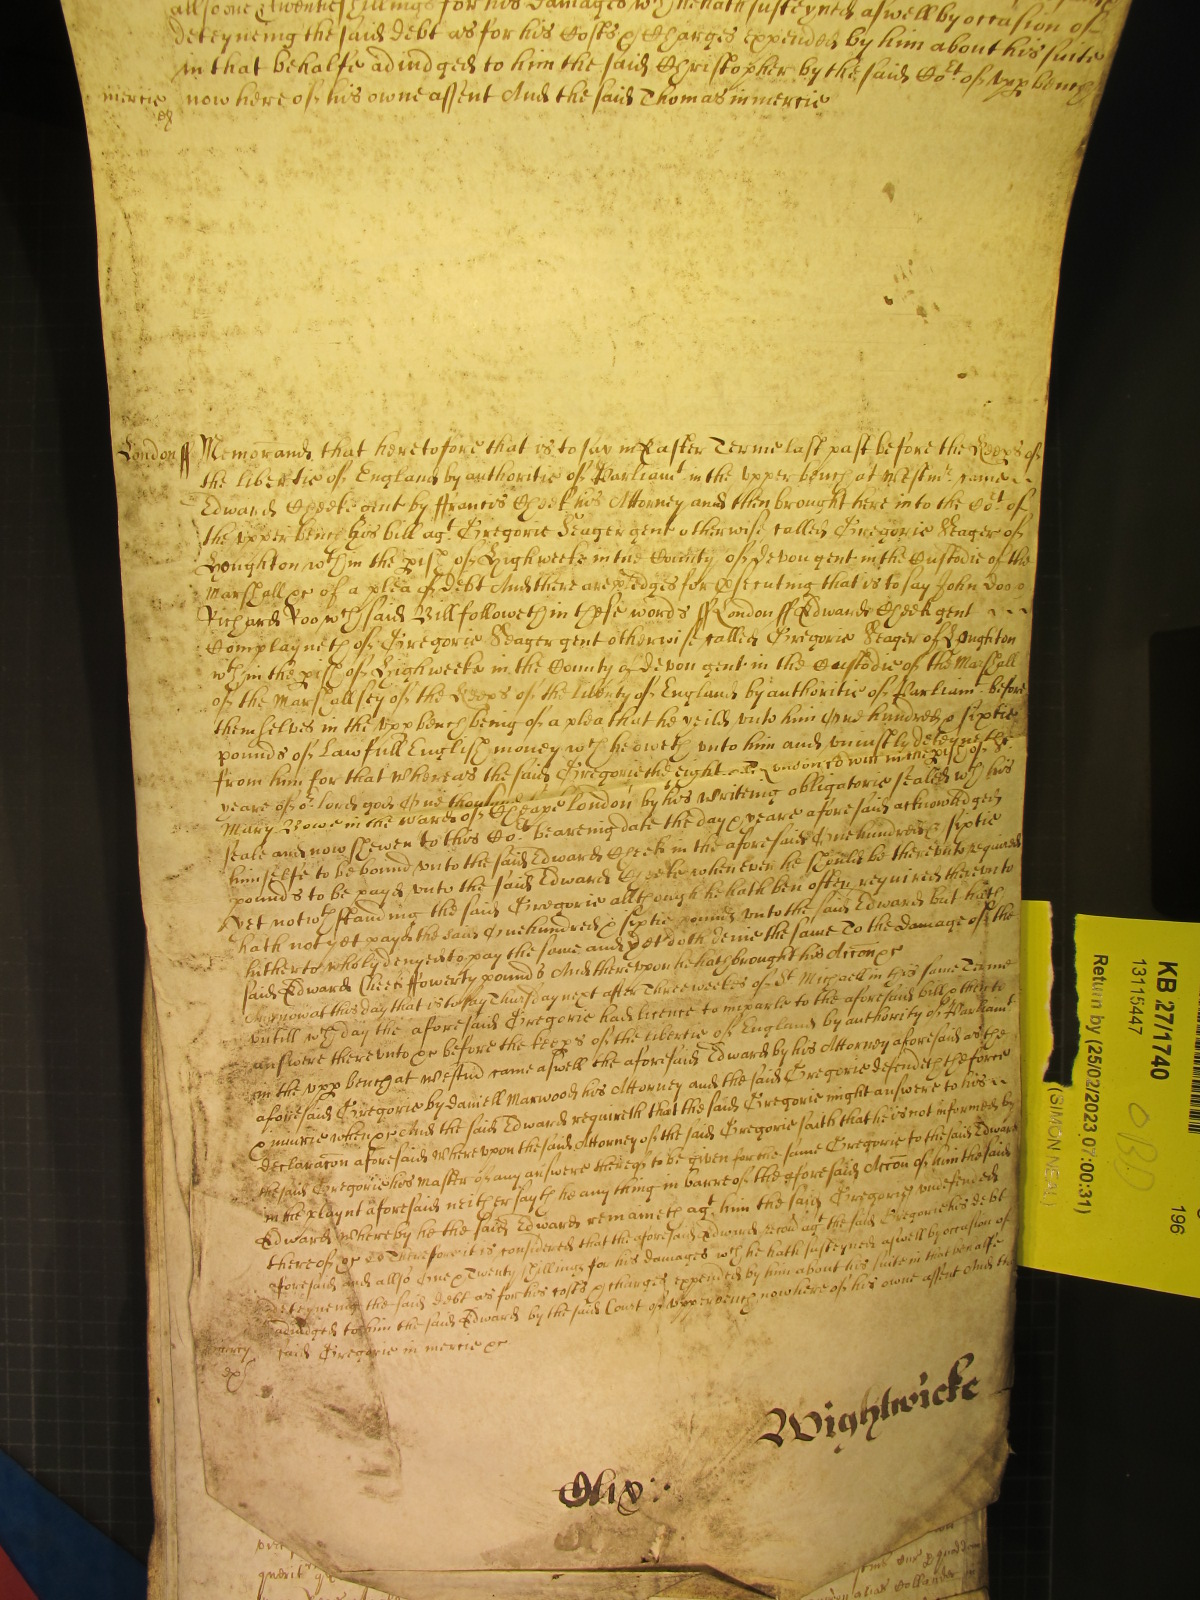 allsoe one & twentie shillings for his damages wch he hath susteyned aswell by occasion of
deteyneing the said debt as for his Costs & Charges expended by him about his suite
in that behalfe adiudged to him the said Christopher by the said Cort of vpp bench
mercie now here of his owne assent And the said Thomas in mercie
London ss Memorand that heretofore that is to say in Easter Terme last past before the Keeps of
the libertie of England by authoritie of Parliamt in the vpper bench at Westmr came
Edward Cheeke gent by ffrancis Cheeke his Attorney and then brought here into the Cort of
the vpper bench his bill agt Gregorie Seager gent otherwise called Gregorie Seager of
Houghton wthin the pish of Highweeke in the County of Devon gent in the Custodie of the
Marshall &c of a plea of debt And there are pledges for psecuting that is to say John Doo &
Richard Roo wch said Bill followeth in these words ss London ss Edward Cheeke gent
Complayneth of Gregorie Seager gent otherwise called Gregorie Seager of Houghton
wthin the pish of Highweeke in the County of Devon gent in the Custodie of the Marshall
of the Marshallsey of the Keeps of the liberty of England by authoritie of Parliamt before
themselves in the vpp bench being of a plea that he yeild vnto him One hundred & sixtie
pounds of Lawfull English money wch he oweth vnto him and vniustly deteyneth
from him for that whereas the said Gregorie the eight London to wit in the pish of St
yeare of or lord god One thousand
Mary Bowe in the ward of Cheape London by his writeing obligatorie sealed wth his
seale and now shewen to this Cort beareing date the day & yeare aforesaid acknowledged
himselfe to be bound vnto the said Edward Cheeke in the aforesaid One hundred & sixtie
pounds to be payd vnto the said Edward Cheeke whenever he should be therevnto required
yet notwthstanding the said Gregorie allthough he hath ben often required therevnto
hath not yet payd the said One hundred & sixtie pounds vnto the said Edward but hath
hitherto wholy denyed to pay the same and yet doth denie the same To the damage of the
said Edward Cheeke ffowerty pounds And therevpon he hath brought his Accon &c
And now at this day that is to say Thursday next after Three weekes of St Michaell in this same Terme
vntill wch day the aforesaid Gregorie had licence to imparle to the aforesaid bill & then to
answere therevnto &c before the keeps of the libertie of England by authority of Parliamt
in the vpp bench at Westm came aswell the aforesaid Edward by his Attorney aforesaid as the
aforesaid Gregorie by Daniell Marwood his Attorney and the said Gregorie defendeth the force
& iniurie when &c And the said Edward requireth that the said Gregorie might answere to his
declaracon aforesaid Wherevpon the said Attorney of the said Gregorie saith that he is not informed by
the said Gregorie his Master of any answere thereof to be given for the same Gregorie to the said Edward
in the playnt aforesaid neither sayth he any thing in barre of the aforesaid Accon of him the said
Edward Whereby he the said Edward remaineth agt him the said Gregorie vndefended
thereof &c Therefore it is considered that the aforesaid Edward recou agt the said Gregorie his debt
foresaid and allso One & Twenty shillings for his damages wch he hath susteyned aswell by occasion of
deteyneing the said debt as for his costs & charges expended by him about his suite in that behalfe
adiudged to him the said Edward by the said Court of Vpper bench now here of his owne assent And the
mercy said Gregorie in mercie &c
Wightwicke
KB 27/1740
13115447
196
Return by (25/02/2023 07:00:31)
(SIMON NEAL)